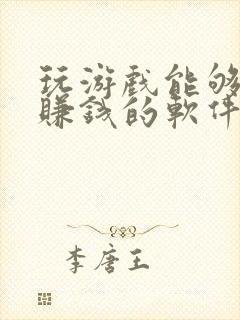 玩游戲能够
賺錢的軟件
李唐王